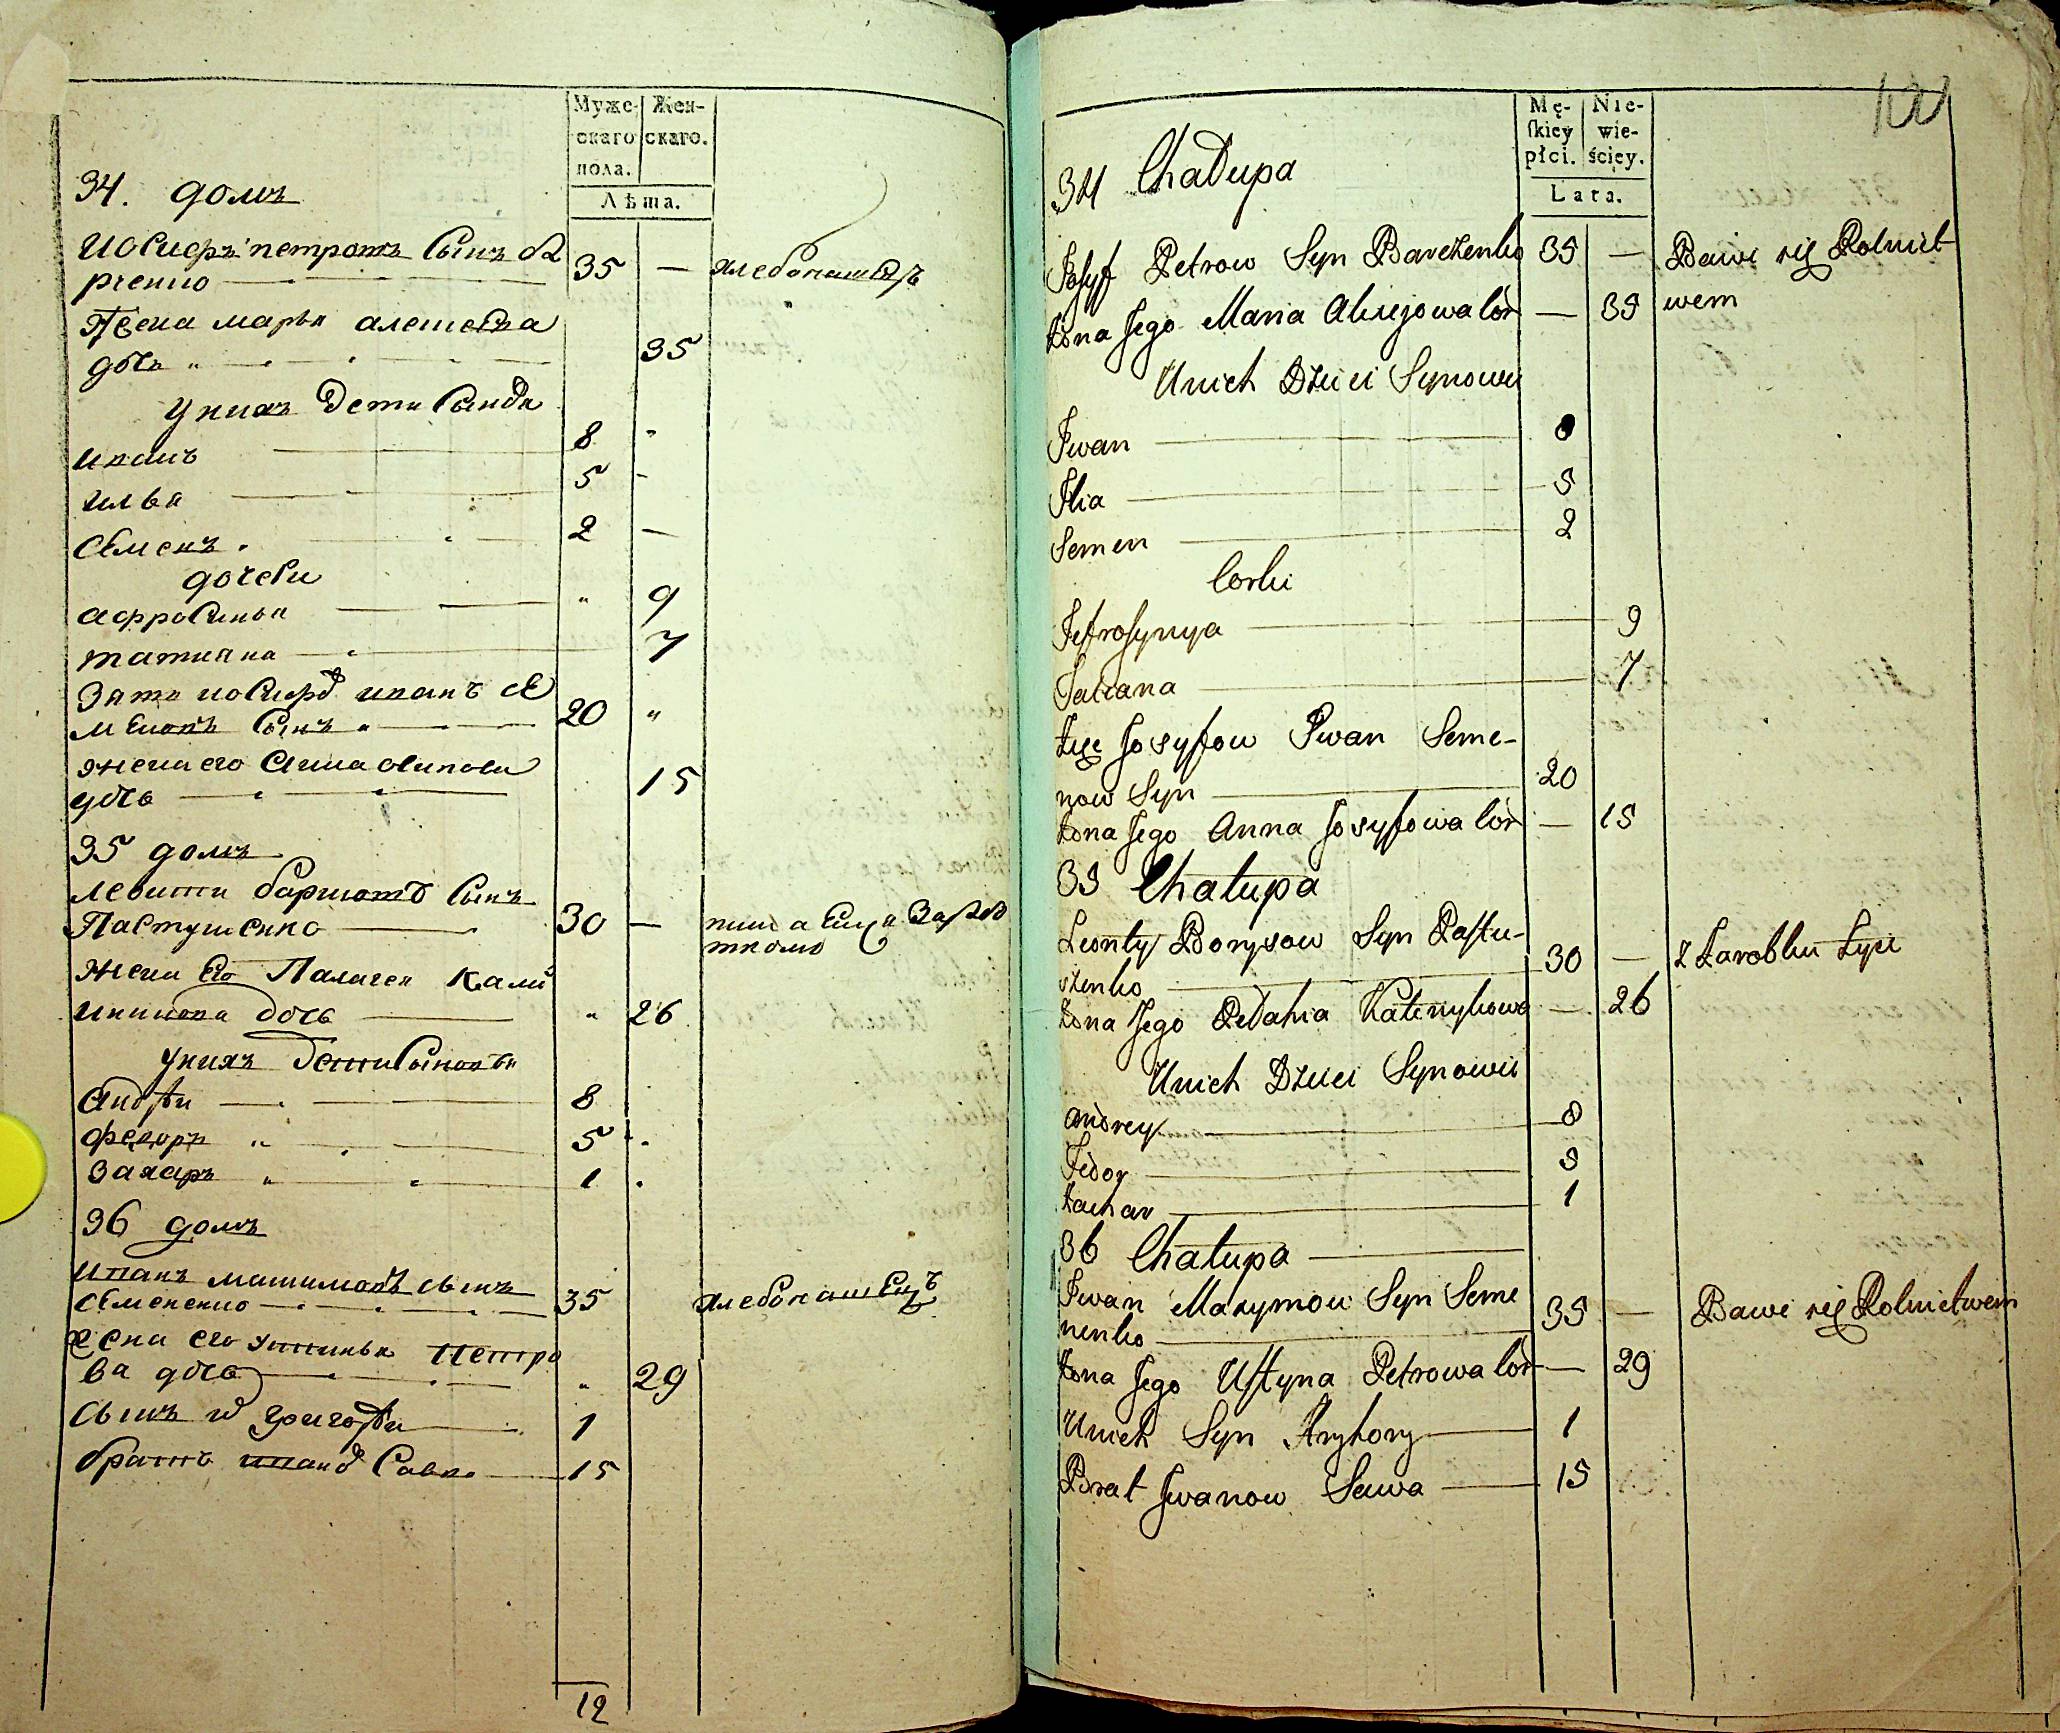 Муже- Жен-
скаго скаго.
пола.
Лѣта.
34. домъ
Иосифъ петровъ сынъ ба
рченко 35 — хлебопашецъ
Жена марья алексеева
дочь 35
У нихъ дети сыновя
иванъ 8
илья 5
семенъ 2 —
дочери
афросинья 9
татияна 7
Зять иосифовъ иванъ се
меновъ сынъ 20
жена его анна осипова
дочь 15
35 домъ
левонти борисовъ сынъ
Пастушенко 30 — питаеца заработкомъ
жена его Палагея Кали
никова дочь 26
у нихъ дети сыновья
андрѣи 8
федоръ 5
захаръ 1
36 домъ
Иванъ максимовъ сынъ
семененко 35 хлебопашецъ
жена его устинья петро
ва дочь 29
сынъ григорѣи 1
братъ ивановъ Савва 15
12
Mę- Nie-
ſkiey wie-
płci. ściey.
Lata.
34 Chałupa
Josyf Petrow Syn Barczenko 35 — Bawi się Rolnict
żona Jego Maria Alexiejowa Cór — 35 wem
U nich Dzieci Synowie
Iwan 8
Ilia 5
Semen 2
Corki
Jefrosynya 9
Tatiana 7
Zięć Josyfow Iwan Seme-
now Syn 20
żona Jego Anna Josyfowa Cór — 15
35 Chałupa
Leonty Borysow Syn Paſtu-
szenko 30 — z Zarobku żyie
żona Jego Pełahia Kalenykowa — 26
U nich Dzieci Synowie
Andrey 8
Fedor 5
Zachar 1
36 Chałupa
Iwan Maxymow Syn Seme
nenko 35 — Bawi się Rolnictwem
żona Jego Uſtyna Petrowa Cór — 29
U nich Syn Hryhory 1
Brat Iwanow Sawa 15